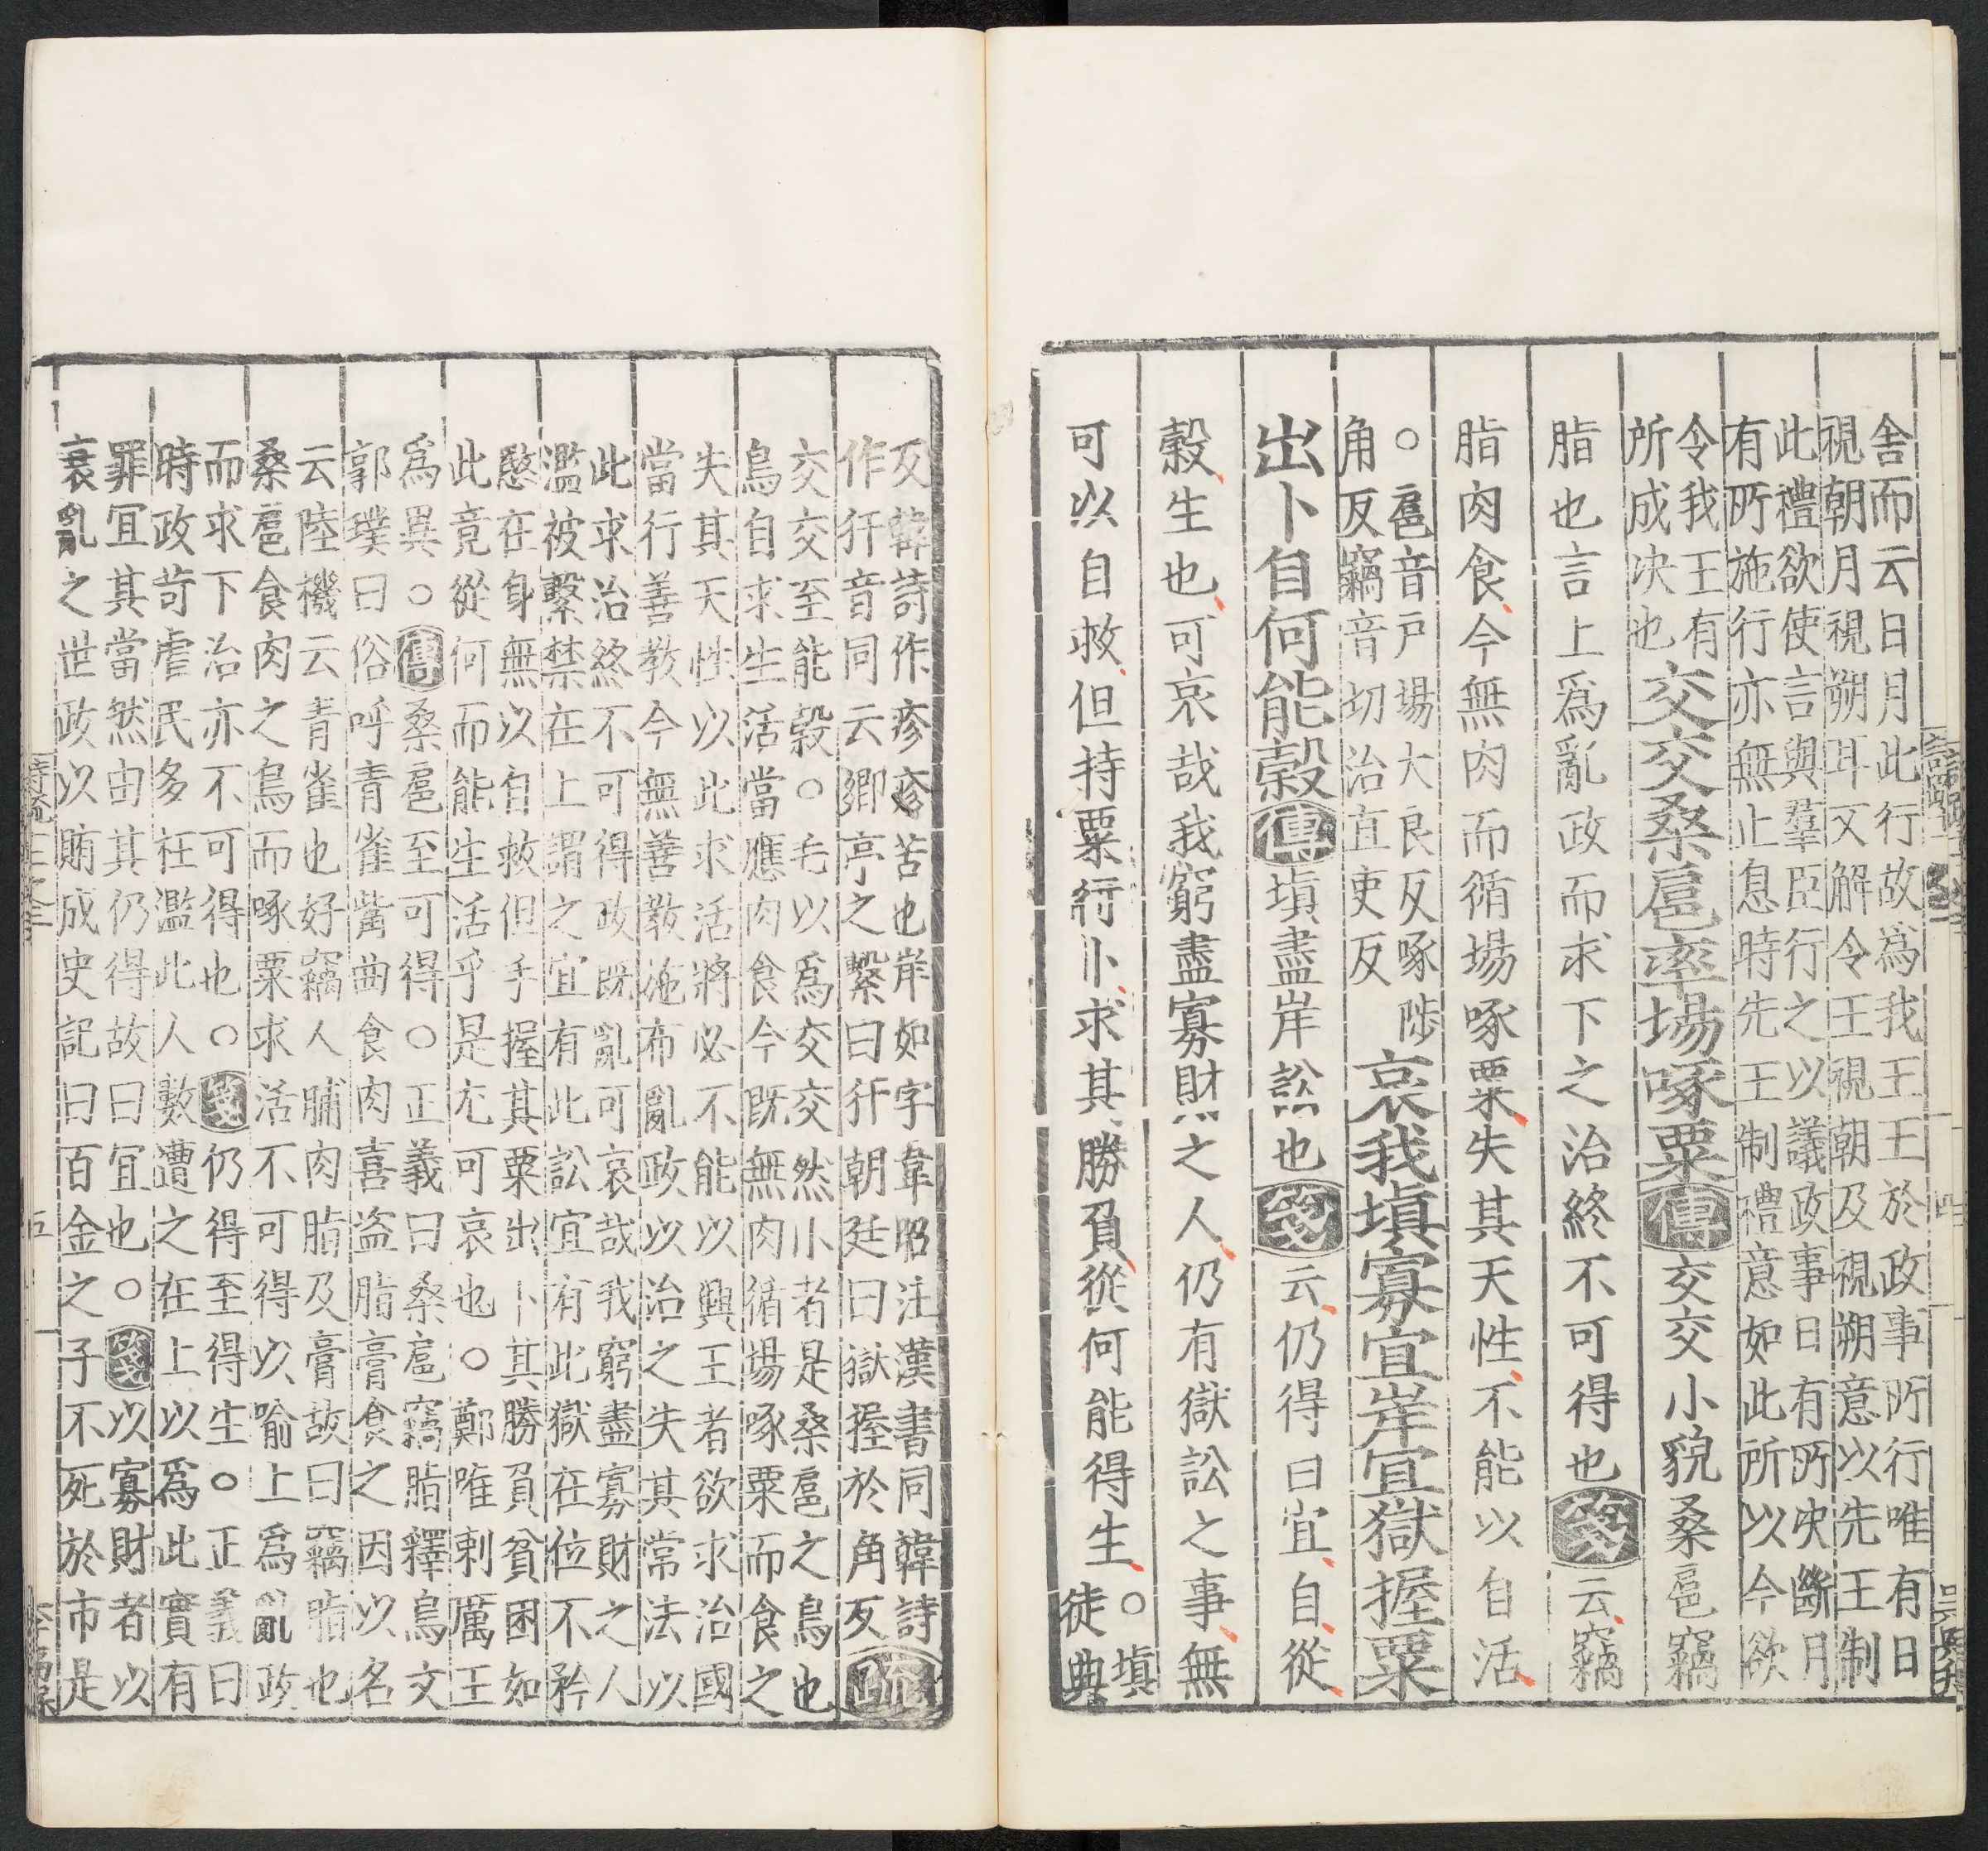 舍而云日月此行故爲我王王於政事所行唯有日
視朝月視朔耳又解令王視朝及視朔意以先王制
此禮欲使言與羣臣行之以議政事日有所決斷月
有所施行亦無止息時先王制禮意如此所以今欲
令我王有
所成决也
交交桑扈率場啄粟傳交交小貌桑扈竊
脂也言上爲亂政而求下之治終不可得也箋云竊
脂肉食今無肉而循場啄粟失其天性不能以自活
○扈音戶場大良反啄陟
角反竊音切治直吏反
哀我填寡宜岸宜獄握粟
出卜自何能穀傳填盡岸訟也箋云仍得曰宜自從
穀生也可哀哉我窮盡寡財之人仍有獄訟之事無
可以自救但持粟行卜求其勝負從何能得生
○填
徒典
反韓詩作疹疹苦也岸如字韋昭注漢書同韓詩
作犴音同云鄉亭之繫曰犴朝廷曰獄握於角反疏
交交至能穀○毛以爲交交然小者是桑扈之鳥也
鳥自求生活當應肉食今既無肉循場啄粟而食之
失其天性以此求活將必不能以興王者欲求治國
當行善教今無善教施布亂政以治之失其常法以
此求治終不可得政既亂可哀哉我窮盡寡財之人
濫被繫禁在上謂之宜有此訟宜有此獄在位不矜
愍在身無以自救但手握其粟出卜其勝負貧困如
此竟從何而能生活乎是尤可哀也○鄭唯刺厲王
爲異○傳桑扈至可得○正義曰桑扈竊脂釋鳥文
郭璞曰俗呼青雀觜曲食肉喜盗脂膏食之因以名
云陸機云青雀也好竊人脯肉脂及膏故曰竊脂也
桑扈食肉之鳥而啄粟求活不可得以喻上爲亂政
而求下治亦不可得也○箋仍得至得生○正義曰
時政苛虐民多枉濫此人數遭之在上以爲此實有
罪宜其當然由其仍得故曰宜也○箋以寡財者以
衰亂之世政以賄成史記曰百金之子不死於市是